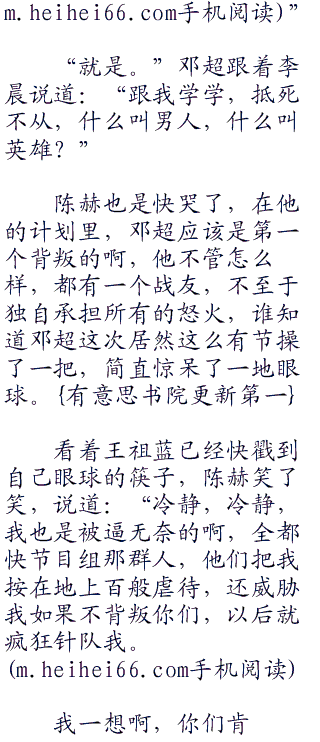 m.heihei66.com手机阅读)”
“就是。”邓超跟着李
晨说道：“跟我学学，抵死
不从，什么叫男人，什么叫
英雄？”
陈赫也是快哭了，在他
的计划里，邓超应该是第一
个背叛的啊，他不管怎么
样，都有一个战友，不至于
独自承担所有的怒火，谁知
道邓超这次居然这么有节操
了一把，简直惊呆了一地眼
球。{有意思书院更新第一}
看着王祖蓝已经快戳到
自己眼球的筷子，陈赫笑了
笑，说道：“冷静，冷静，
我也是被逼无奈的啊，全都
快节目组那群人，他们把我
按在地上百般虐待，还威胁
我如果不背叛你们，以后就
疯狂针队我。
(m.heihei66.com手机阅读)
我一想啊，你们肯